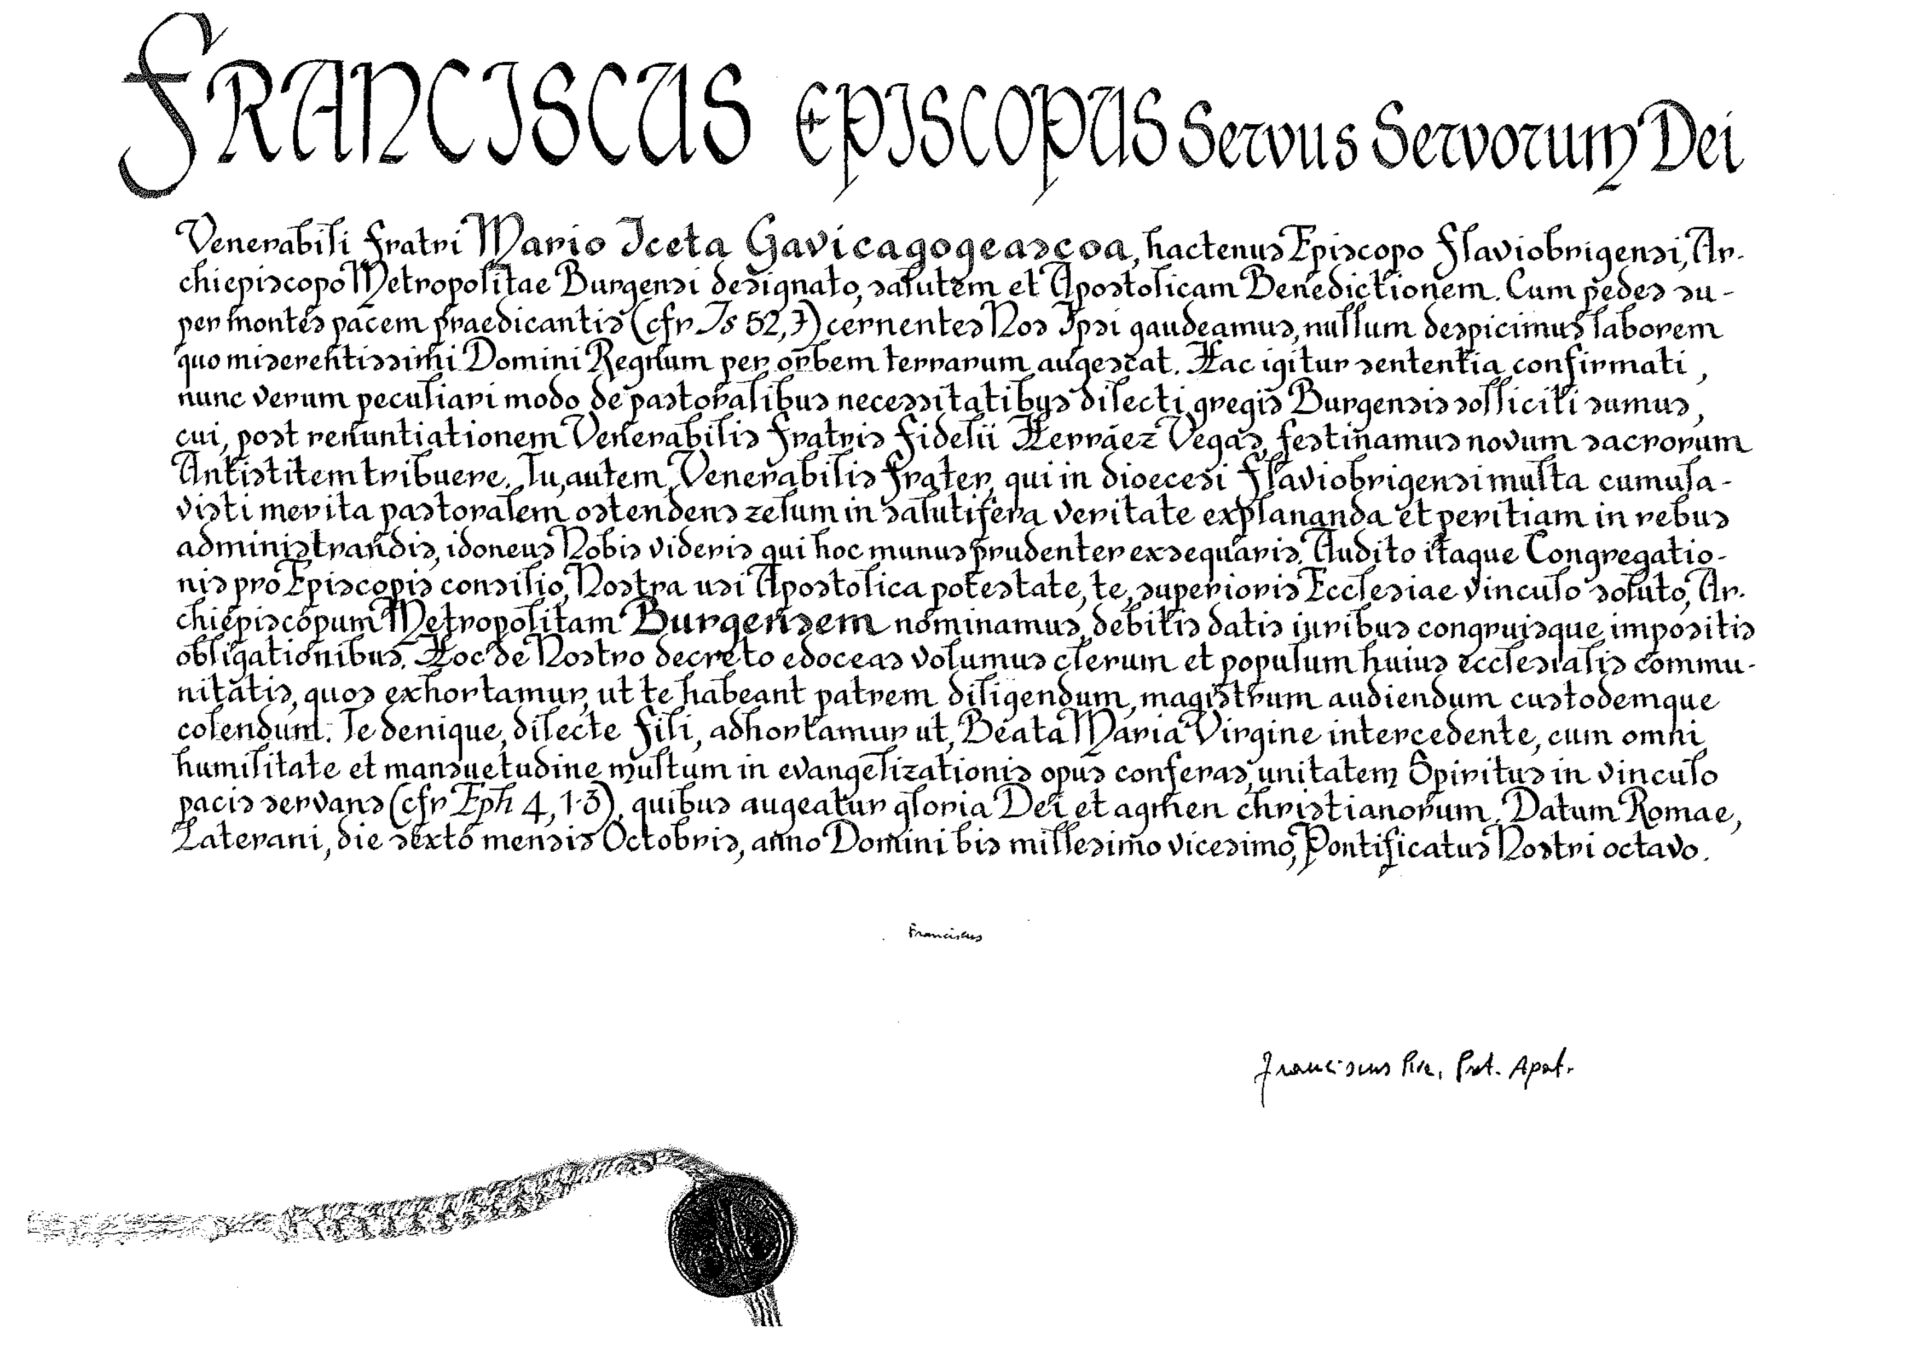 FRANCISCUS EPISCOPUS Servus Servorum Dei
Venerabili Fratri Mario Iceta Gavicagogeascoa, hactenus Episcopo Flaviobrigensi, Ar-
chiepiscopo Metropolitae Burgensi designato, salutem et Apostolicam Benedictionem. Cum pedes su-
per montes pacem praedicantis (cfr Is 52,7) cernentes Nos Ipsi gaudeamus, nullum despicimus laborem
quo miserentissimi Domini Regnum per orbem terrarum augescat. Hac igitur sententia confirmati,
nunc verum peculiari modo de pastoralibus necessitatibus dilecti gregis Burgensis solliciti sumus,
cui, post renuntiationem Venerabilis Fratris Fidelii Herráez Vegas, festinamus novum sacrorum
Antistitem tribuere. Tu, autem, Venerabilis Frater, qui in dioecesi Flaviobrigensi multa cumula-
visti merita pastoralem ostendens zelum in salutifera veritate explananda et peritiam in rebus
administrandis, idoneus Nobis videris qui hoc munus prudenter exsequaris. Audito itaque Congregatio-
nis pro Episcopis consilio, Nostra usi Apostolica potestate, te, superioris Ecclesiae vinculo soluto, Ar-
chiepiscopum Metropolitam Burgensem nominamus, debitis datis iuribus congruisque impositis
obligationibus. Hoc de Nostro decreto edoceas volumus clerum et populum huius ecclesialis commu-
nitatis, quos exhortamur, ut te habeant patrem diligendum, magistrum audiendum custodemque
colendum. Te denique, dilecte Fili, adhortamur ut, Beata Maria Virgine intercedente, cum omni
humilitate et mansuetudine multum in evangelizationis opus conferas, unitatem Spiritus in vinculo
pacis servans (cfr Eph 4, 1-3), quibus augeatur gloria Dei et agmen christianorum. Datum Romae,
Laterani, die sexto mensis Octobris, anno Domini bis millesimo vicesimo, Pontificatus Nostri octavo.
Franciscus
Franciscus Piva, Prot. Apost.